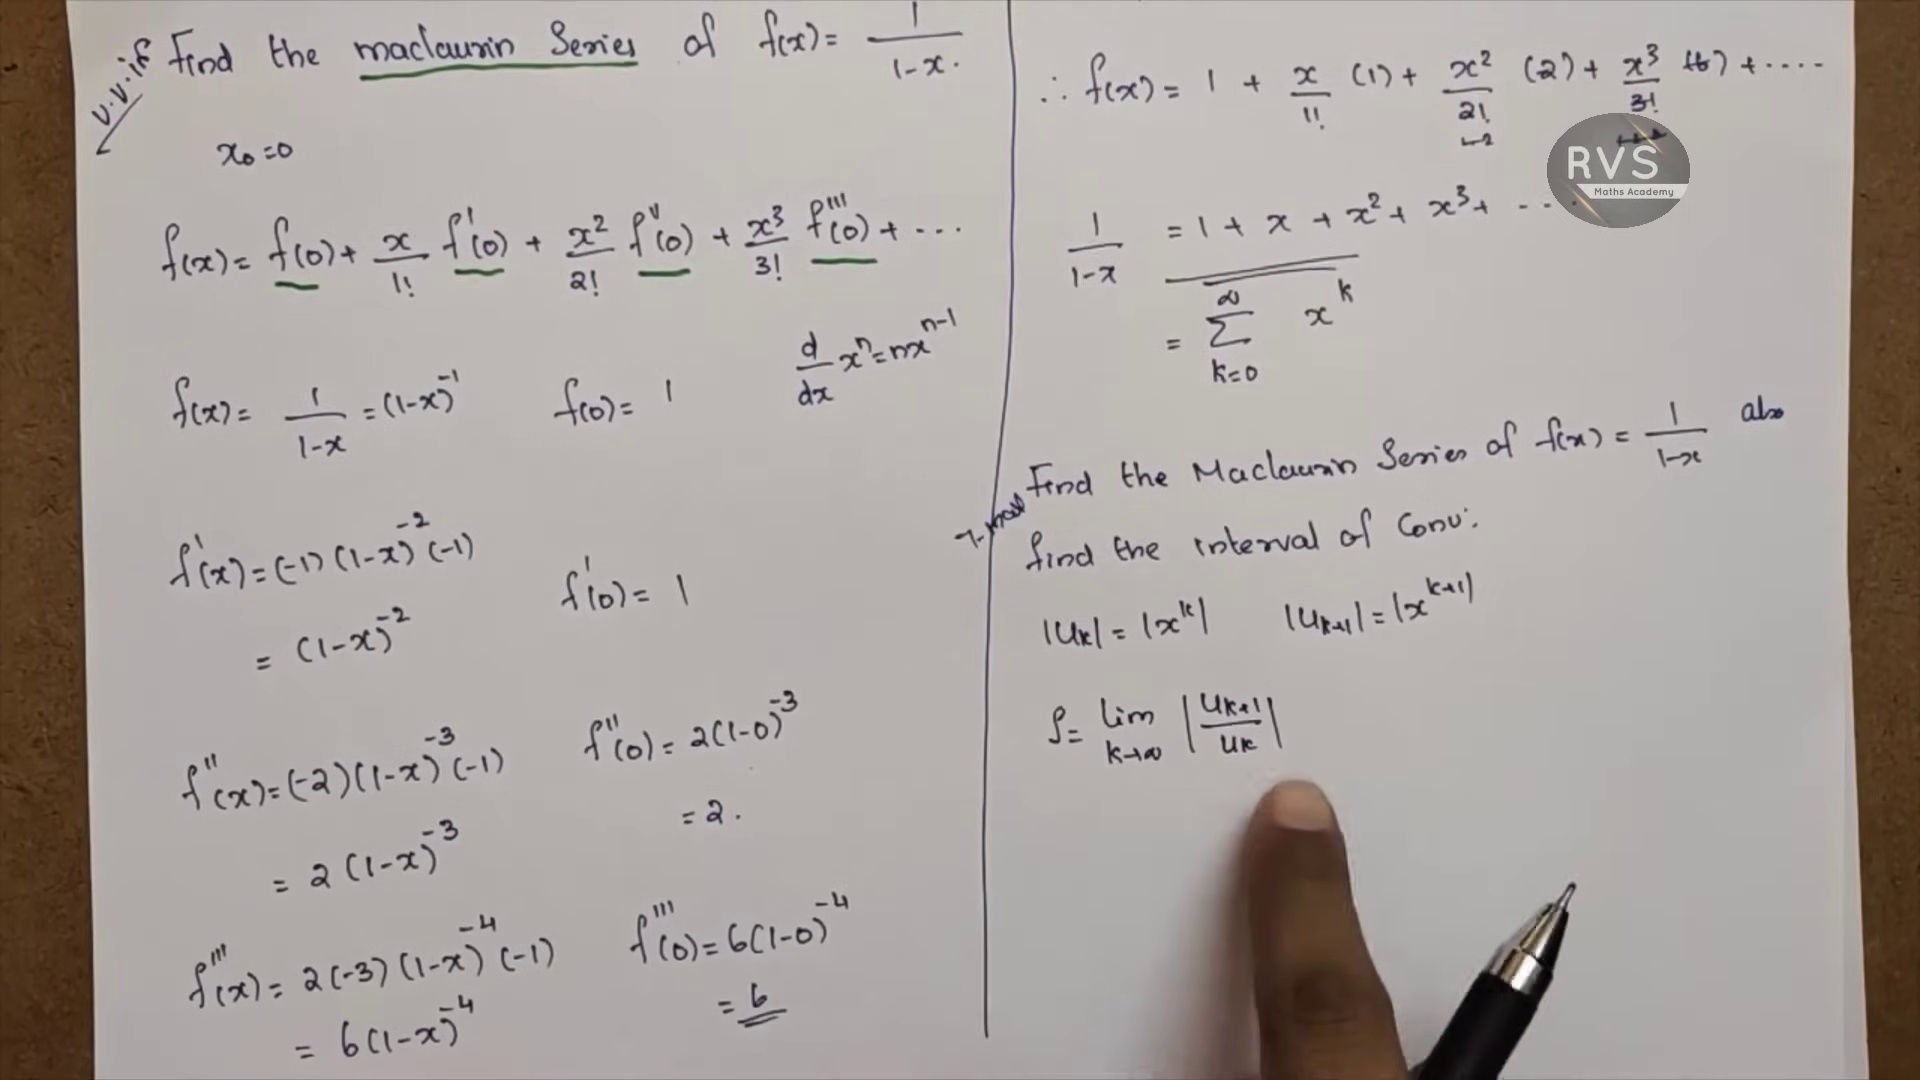 v.v.if
Find the maclaurin Series of f(x) = 1/1-x.
x₀=0
f(x) = f(0) + x/1! f'(0) + x²/2! f''(0) + x³/3! f'''(0) + ...
d/dx xⁿ = nxⁿ⁻¹
f(x) = 1/1-x = (1-x)⁻¹ f(0) = 1
f'(x) = (-1) (1-x)⁻² (-1)
= (1-x)⁻² f'(0) = 1
f''(x) = (-2) (1-x)⁻³ (-1) f''(0) = 2(1-0)⁻³
= 2 (1-x)⁻³ = 2.
f'''(x) = 2(-3) (1-x)⁻⁴ (-1) f'''(0) = 6(1-0)⁻⁴
= 6(1-x)⁻⁴ = 6
∴ f(x) = 1 + x/1! (1) + x²/2! (2) + x³/3! (6) + ....
RVS
Maths Academy
1/1-x = 1 + x + x² + x³ + ...
= ∑ₖ₌₀^∞ xᵏ
Find the Maclaurin Series of f(x) = 1/1-x also
find the interval of Conv.
|uₖ| = |xᵏ| |uₖ₊₁| = |xᵏ⁺¹|
ρ = lim k→∞ |uₖ₊₁/uₖ|